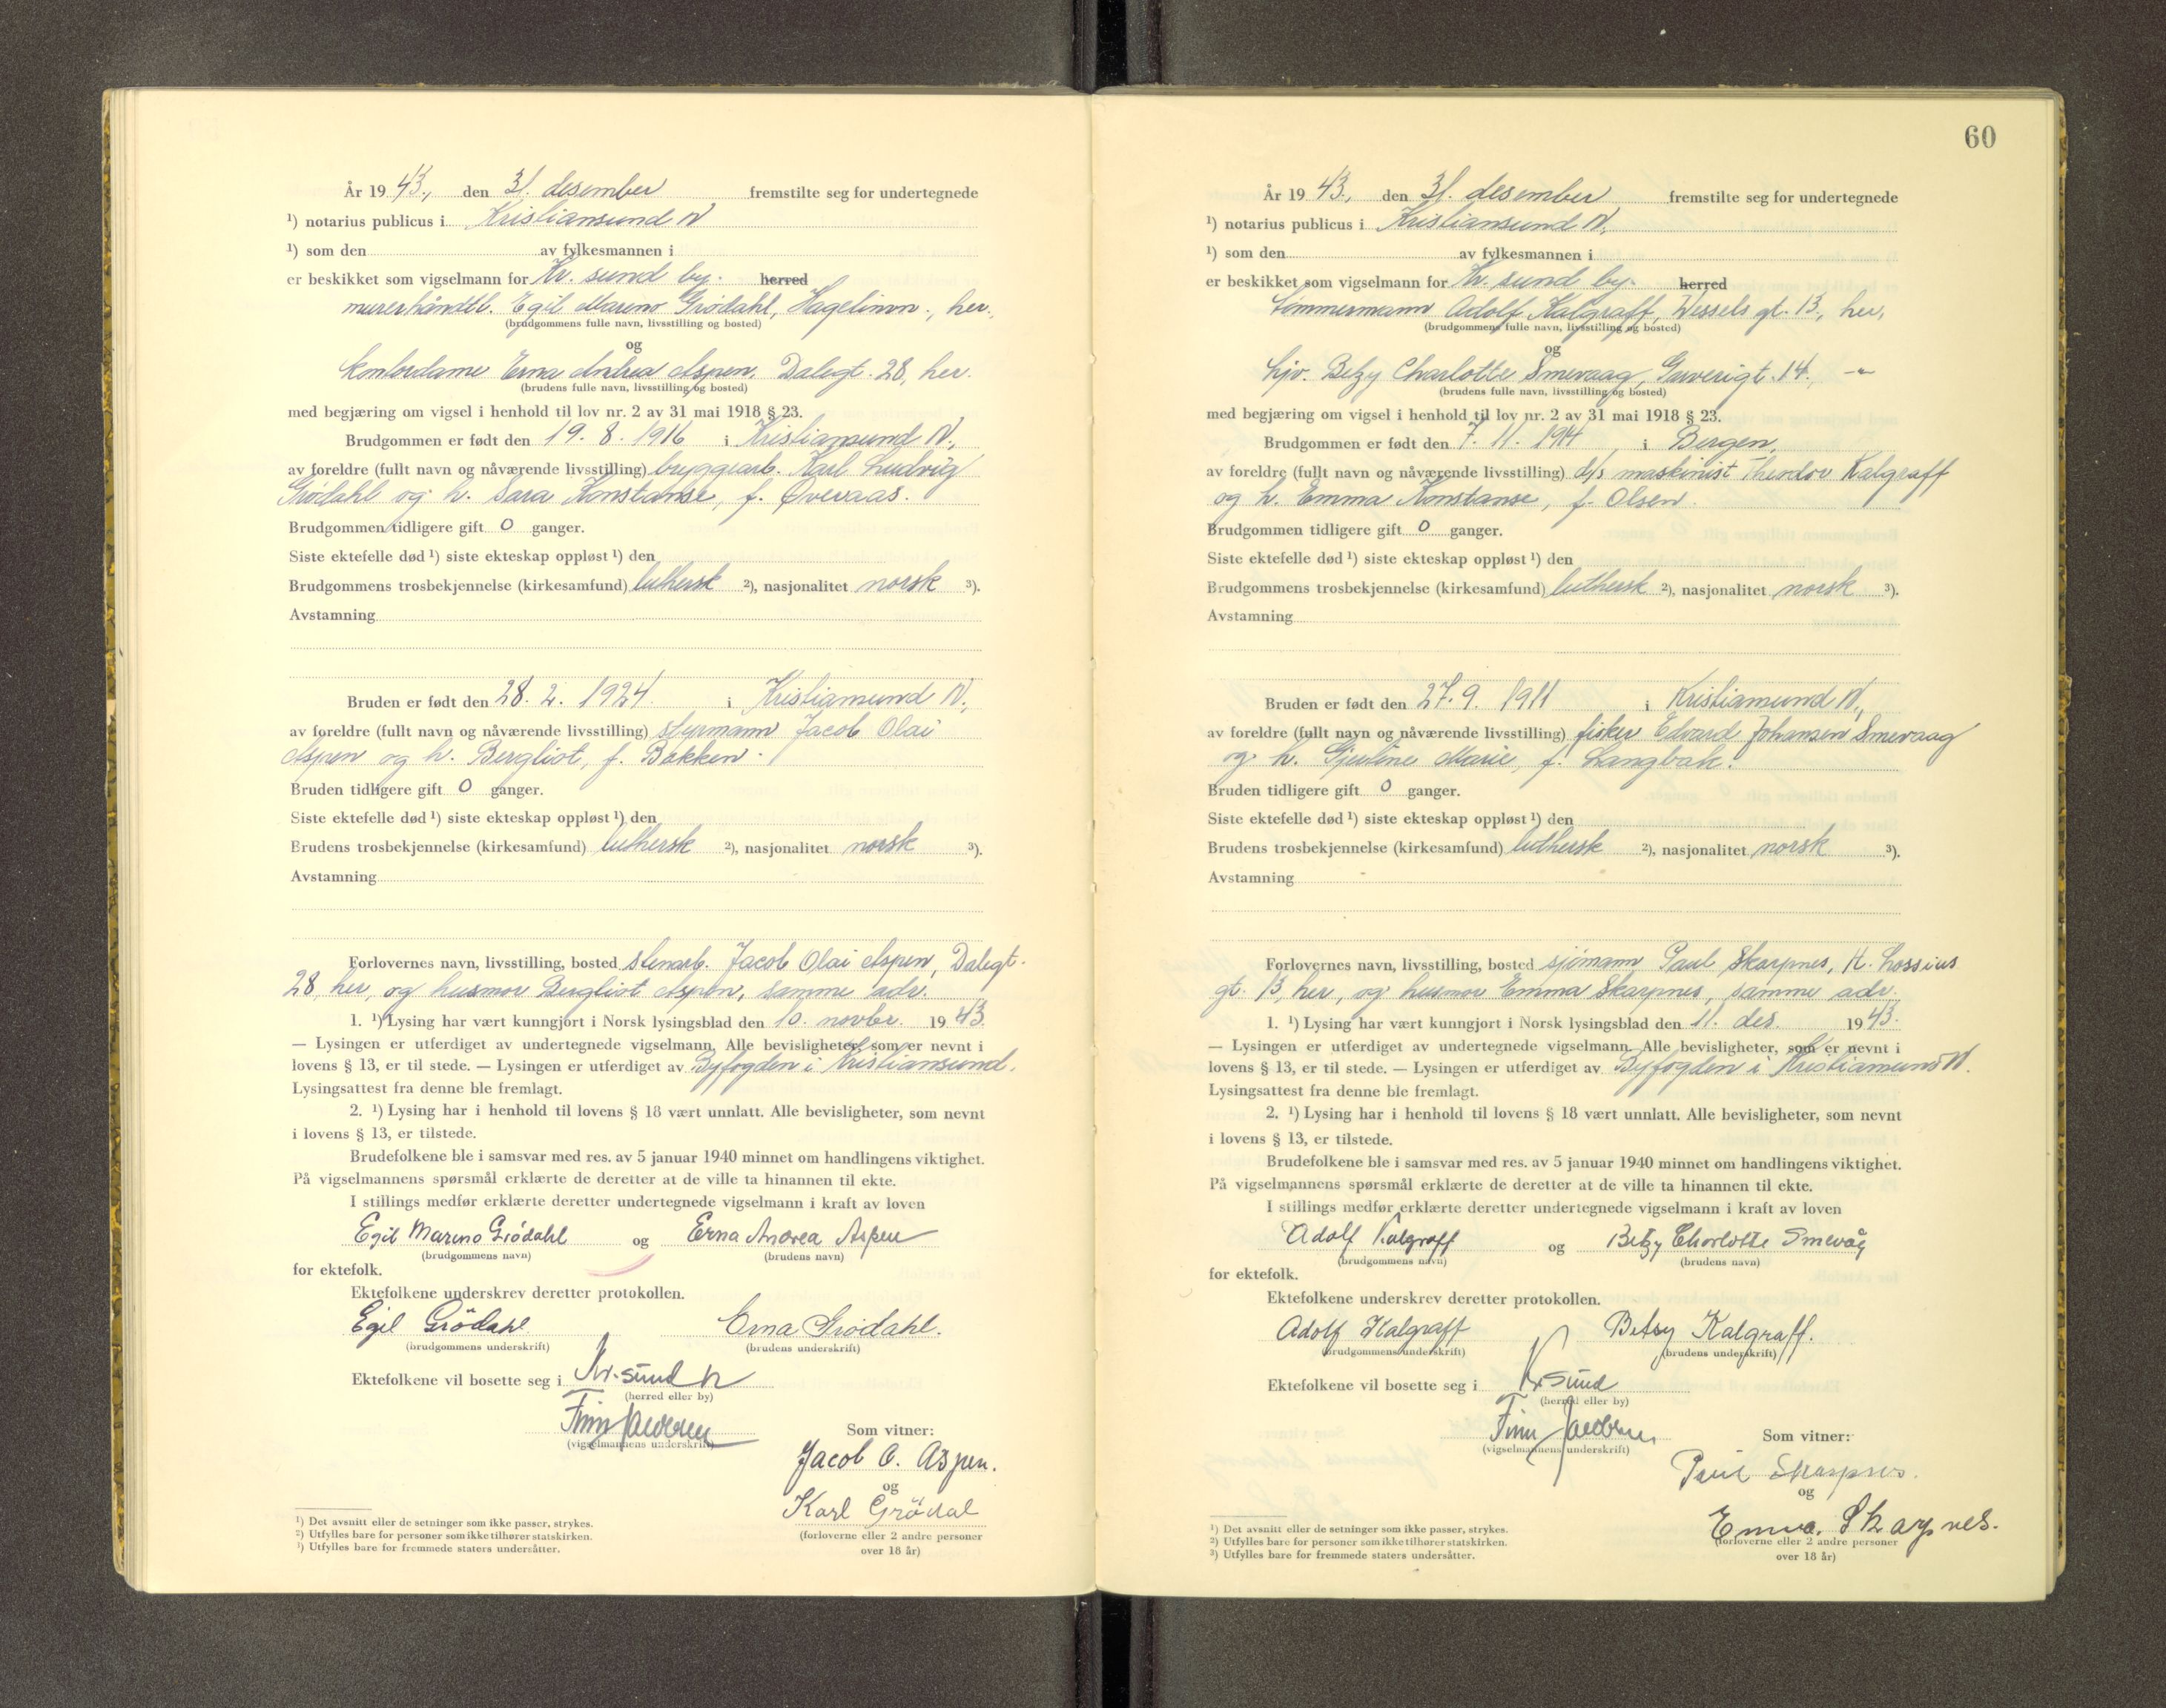 År 1943., den 31. desember fremstilte seg for undertegnede
¹) notarius publicus i Kristiansund N
¹) som den av fylkesmannen i
er beskikket som vigselmann for Kr. sund by. herred
murerhåndtl. Egil Mareno Grödahl, Hagelinn., her.
(brudgommens fulle navn, livsstilling og bosted)
og
kontordame Erna Andrea Aspen, Dalegt. 28, her.
(brudens fulle navn, livsstilling og bosted)
med begjæring om vigsel i henhold til lov nr. 2 av 31 mai 1918 § 23.
Brudgommen er født den 19. 8. 1916 i Kristiansund N.,
av foreldre (fullt navn og nåværende livsstilling) bryggearb. Karl Ludvig
Grödahl og h. Sara Konstanse, f. Overaas.
Brudgommen tidligere gift 0 ganger.
Siste ektefelle død ¹) siste ekteskap oppløst ¹) den
Brudgommens trosbekjennelse (kirkesamfund) luthersk ²), nasjonalitet norsk ³).
Avstamning
Bruden er født den 28. 2. 1924. i Kristiansund N.,
av foreldre (fullt navn og nåværende livsstilling) styrmann Jacob Olai
Aspen og h. Bergliot, f. Bakken.
Bruden tidligere gift 0 ganger.
Siste ektefelle død ¹) siste ekteskap oppløst ¹) den
Brudens trosbekjennelse (kirkesamfund) luthersk ²), nasjonalitet norsk ³).
Avstamning
Forlovernes navn, livsstilling, bosted stenarb. Jacob Olai Aspen, Dalegt.
28, her, og husmor Bergliot Aspen, samme adr.
1. ¹) Lysing har vært kunngjort i Norsk lysingsblad den 10. novbr. 1943.
— Lysingen er utferdiget av undertegnede vigselmann. Alle bevisligheter, som er nevnt i
lovens § 13, er til stede. — Lysingen er utferdiget av Byfogden i Kristiansund.
Lysingsattest fra denne ble fremlagt.
2. ¹) Lysing har i henhold til lovens § 18 vært unnlatt. Alle bevisligheter, som nevnt
i lovens § 13, er tilstede.
Brudefolkene ble i samsvar med res. av 5 januar 1940 minnet om handlingens viktighet.
På vigselmannens spørsmål erklærte de deretter at de ville ta hinannen til ekte.
I stillings medfør erklærte deretter undertegnede vigselmann i kraft av loven
Egil Mareno Grödahl og Erna Andrea Aspen
(brudgommens navn) (brudens navn)
for ektefolk.
Ektefolkene underskrev deretter protokollen.
Egil Grödahl Erna Grödahl.
(brudgommens underskrift) (brudens underskrift)
Ektefolkene vil bosette seg i Kr.sund N
(herred eller by)
Finn Jacobsen
(vigselmannens underskrift)
Som vitner:
Jacob O. Aspen.
og
Karl Grödal
(forloverne eller 2 andre personer
over 18 år)
¹) Det avsnitt eller de setninger som ikke passer, strykes.
²) Utfylles bare for personer som ikke tilhører statskirken.
³) Utfylles bare for fremmede staters undersåtter.
60
År 1943., den 31. desember fremstilte seg for undertegnede
¹) notarius publicus i Kristiansund N.
¹) som den av fylkesmannen i
er beskikket som vigselmann for Kr. sund by. herred
tømmermann Adolf Kalgraff, Wessels gt. 13, her,
(brudgommens fulle navn, livsstilling og bosted)
og
hjv. Betzy Charlotte Smevaag, Garverigt. 14., -"-
(brudens fulle navn, livsstilling og bosted)
med begjæring om vigsel i henhold til lov nr. 2 av 31 mai 1918 § 23.
Brudgommen er født den 7. 11. 1914, i Bergen,
av foreldre (fullt navn og nåværende livsstilling) d/s maskinist Theodor Kalgraff
og h. Emma Konstanse, f. Olsen.
Brudgommen tidligere gift 0 ganger.
Siste ektefelle død ¹) siste ekteskap oppløst ¹) den
Brudgommens trosbekjennelse (kirkesamfund) luthersk ²), nasjonalitet norsk ³).
Avstamning
Bruden er født den 27. 9. 1911 i Kristiansund N.,
av foreldre (fullt navn og nåværende livsstilling) fisker Edvard Johansen Smevaag
og h. Gjertine Marie, f. Langbak.
Bruden tidligere gift 0 ganger.
Siste ektefelle død ¹) siste ekteskap oppløst ¹) den
Brudens trosbekjennelse (kirkesamfund) luthersk ²), nasjonalitet norsk ³).
Avstamning
Forlovernes navn, livsstilling, bosted sjömann Paul Skarpnes, H. Lossius
gt. 13, her, og husmor Emma Skarpnes, samme adr.
1. ¹) Lysing har vært kunngjort i Norsk lysingsblad den 11. des. 1943.
— Lysingen er utferdiget av undertegnede vigselmann. Alle bevisligheter, som er nevnt i
lovens § 13, er til stede. — Lysingen er utferdiget av Byfogden i Kristiansund N.
Lysingsattest fra denne ble fremlagt.
2. ¹) Lysing har i henhold til lovens § 18 vært unnlatt. Alle bevisligheter, som nevnt
i lovens § 13, er tilstede.
Brudefolkene ble i samsvar med res. av 5 januar 1940 minnet om handlingens viktighet.
På vigselmannens spørsmål erklærte de deretter at de ville ta hinannen til ekte.
I stillings medfør erklærte deretter undertegnede vigselmann i kraft av loven
Adolf Kalgraff og Betzy Charlotte Smevåg
(brudgommens navn) (brudens navn)
for ektefolk.
Ektefolkene underskrev deretter protokollen.
Adolf Kalgraff Betsy Kalgraff.
(brudgommens underskrift) (brudens underskrift)
Ektefolkene vil bosette seg i Kr sund
(herred eller by)
Finn Jacobsen
(vigselmannens underskrift)
Som vitner:
Paul Skarpnes.
og
Emma Skarpnes.
(forloverne eller 2 andre personer
over 18 år)
¹) Det avsnitt eller de setninger som ikke passer, strykes.
²) Utfylles bare for personer som ikke tilhører statskirken.
³) Utfylles bare for fremmede staters undersåtter.